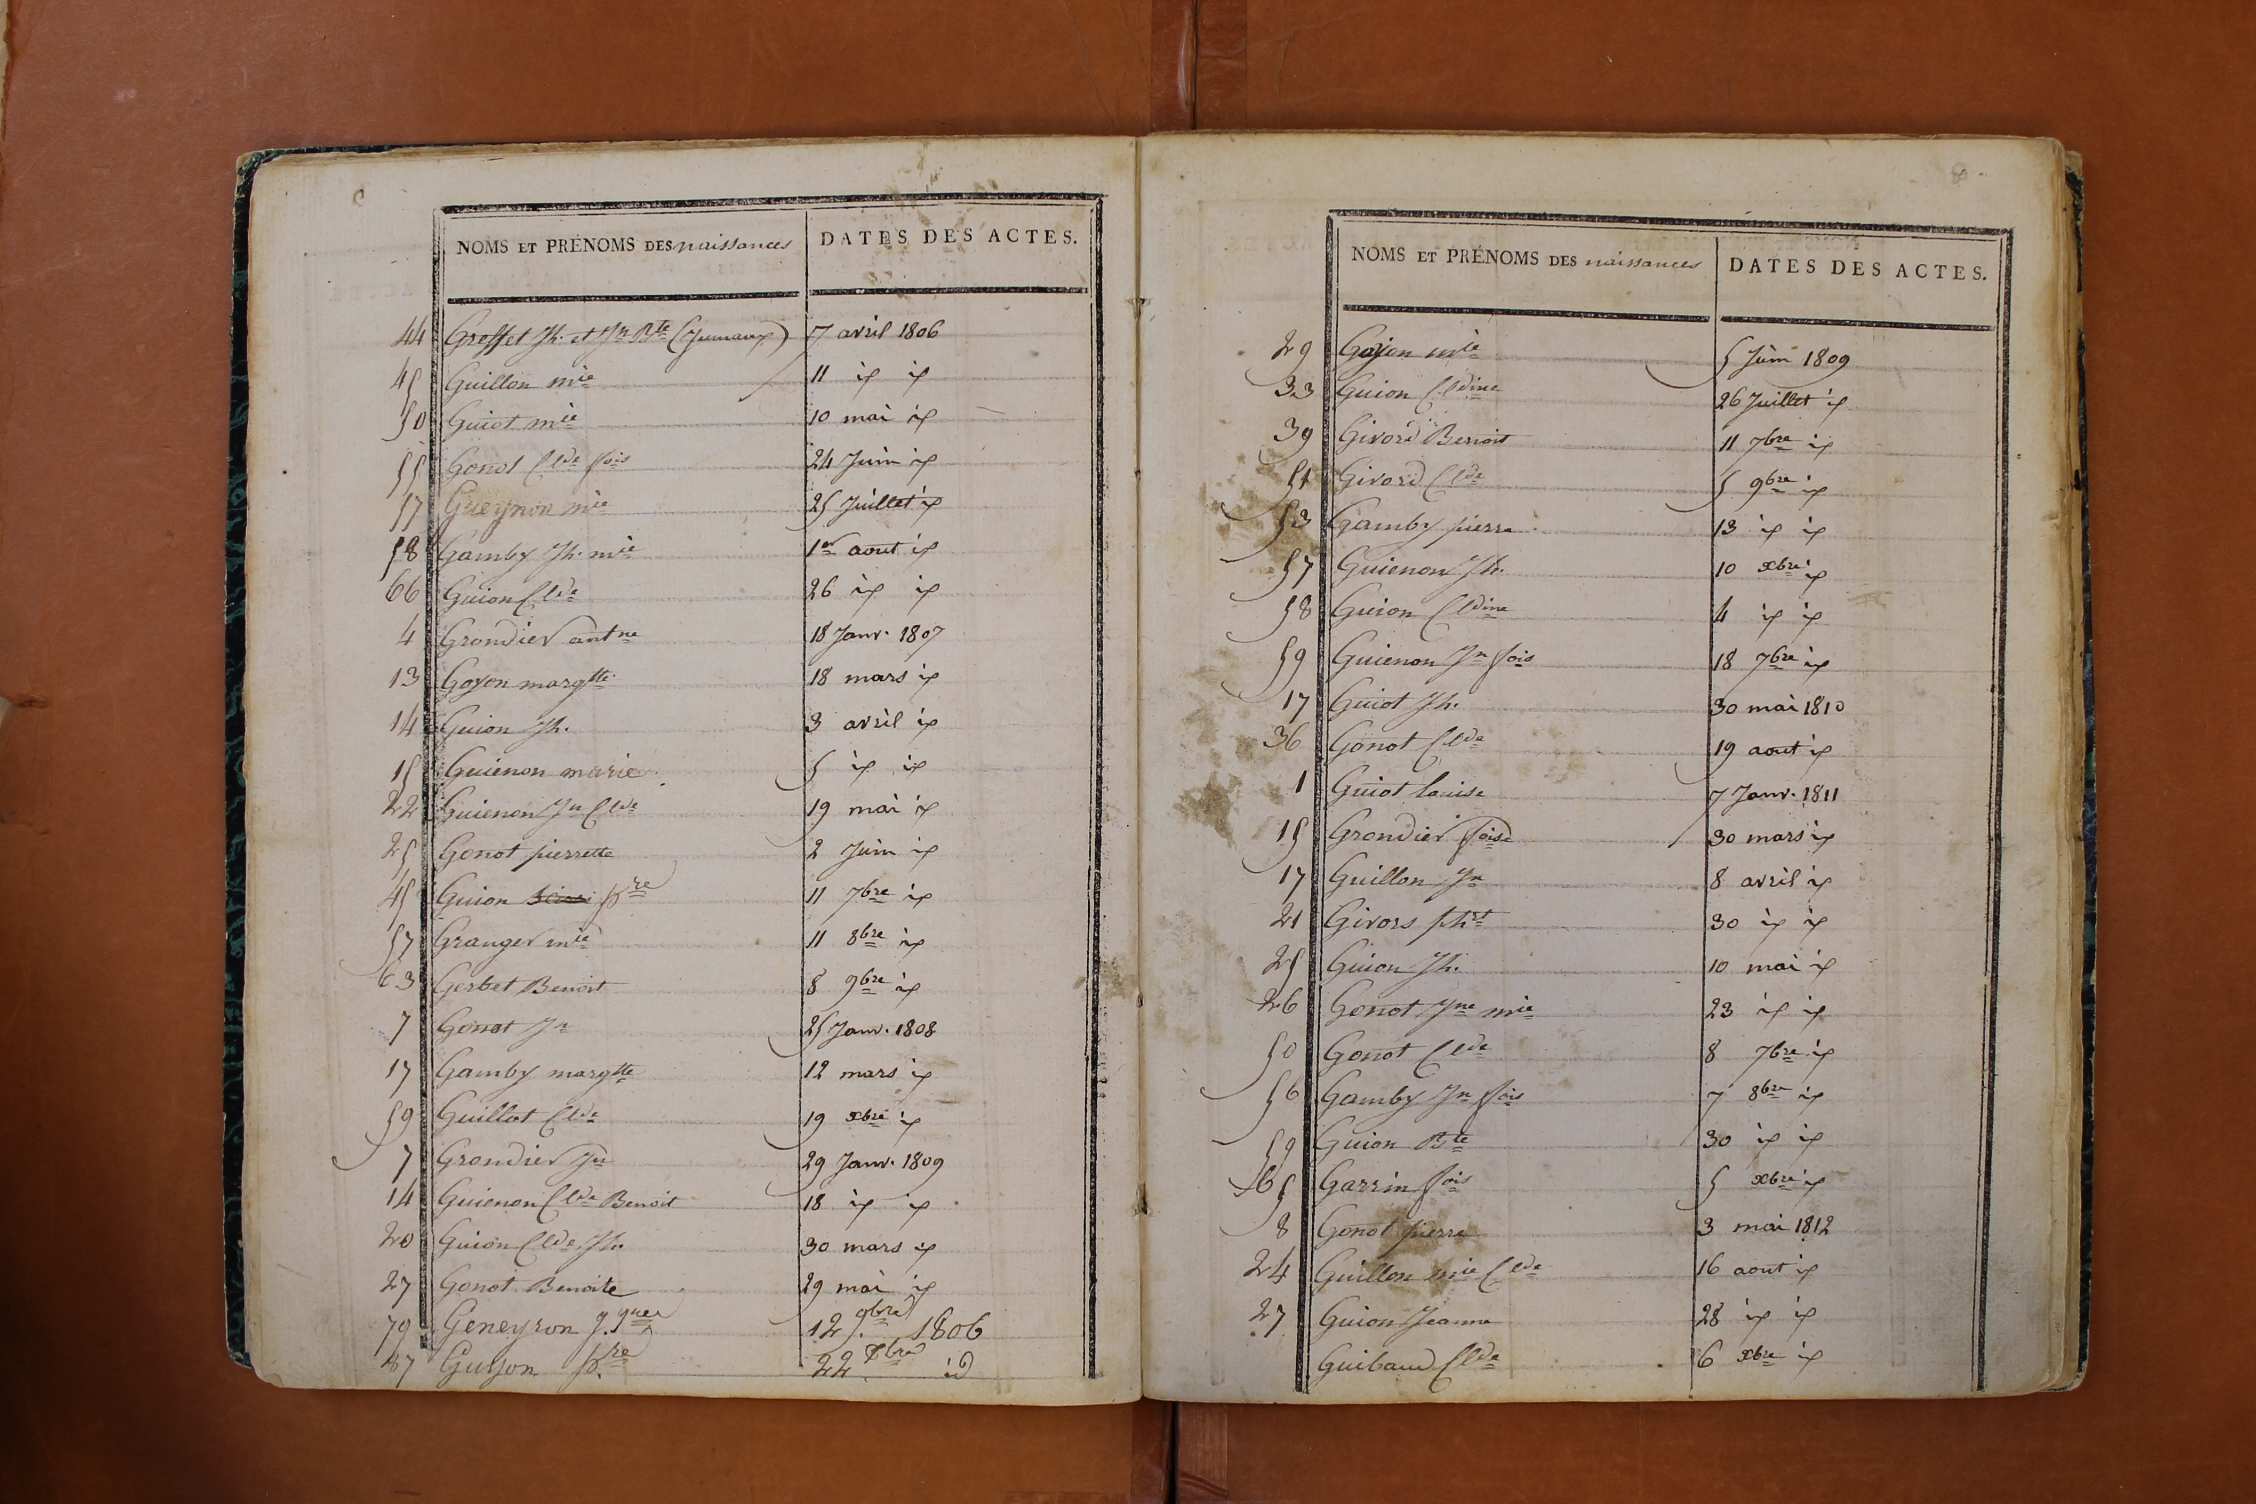 NOMS ET PRÉNOMS DES naissances DATES DES ACTES.
44 Groffet Jh. et Jn Bte (Jumaux) 7 avril 1806
45 Guillon mie 11 id id
50 Guiot mie 10 mai id
55 Gonot Clde fois 24 Juin id
57 Gueynon mie 25 Juillet id
58 Gamby Jh. mie 1er aout id
66 Guion Clde 26 id id
4 Grondier antne 18 Janv. 1807
13 Goyon margtte 18 mars id
14 Guion Jh. 3 avril id
15 Guienon marie 5 id id
22 Guienon Jn Clde 19 mai id
25 Gonot pierrette 2 Juin id
45 Guion pre 11 7bre id
57 Granger mie 11 8bre id
63 Gerbet Benoit 8 9bre id
7 Gonot Jn 25 Janv. 1808
17 Gamby margtte 12 mars id
59 Guillot Clde 19 xbre id
7 Grondier Jn 29 Janv. 1809
14 Guienon Clde Benoit 18 id id
20 Guion Clde Jh. 30 mars id
27 Gonot Benoite 29 mai id
79 Geneyron J.ques 12 9bre 1806
87 Guyon pre 22 xbre id
NOMS ET PRÉNOMS DES naissances DATES DES ACTES.
29 Goyon mie 5 Juin 1809
33 Guion Cldine 26 Juillet id
39 Givord Benoit 11 7bre id
51 Givord Clde 5 9bre id
53 Gamby pierre 13 id id
57 Guienon Jh. 10 xbre id
58 Guion Cldine 4 id id
59 Guienon Jn fois 18 7bre id
17 Guiot Jh. 30 mai 1810
36 Gonot Clde 19 aout id
1 Guiot louise 7 Janv. 1811
15 Grondier foise 30 mars id
17 Guillon Jn 8 avril id
21 Givors phrt 30 id id
25 Guion Jh. 10 mai id
26 Gonot Jne mie 23 id id
50 Gonot Clde 8 7bre id
56 Gamby Jn fois 7 8bre id
59 Guion Bte 30 id id
65 Garrin fois 5 xbre id
8 Gonot pierre 3 mai 1812
24 Guillon mie Clde 16 aout id
27 Guion Jeanne 28 id id
Guibaud Clde 6 xbre id